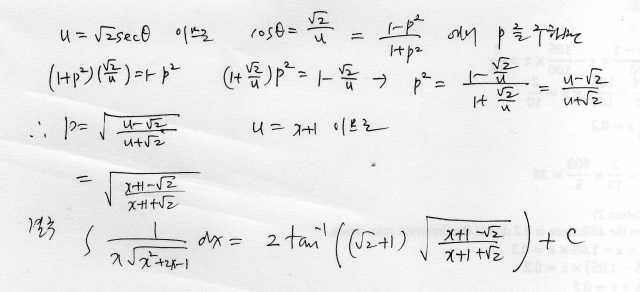 u = √2secθ 이므로 cosθ = √2/u = (1-p²)/(1+p²) 에서 p를 구하면
(1+p²)(√2/u) = 1-p² (1+√2/u)p² = 1-√2/u → p² = (1-√2/u)/(1+√2/u) = (u-√2)/(u+√2)
∴ p = √((u-√2)/(u+√2)) u = x+1 이므로
= √((x+1-√2)/(x+1+√2))
결국 ∫ 1/(x√(x²+2x-1)) dx = 2tan⁻¹((√2+1)√((x+1-√2)/(x+1+√2))) + C